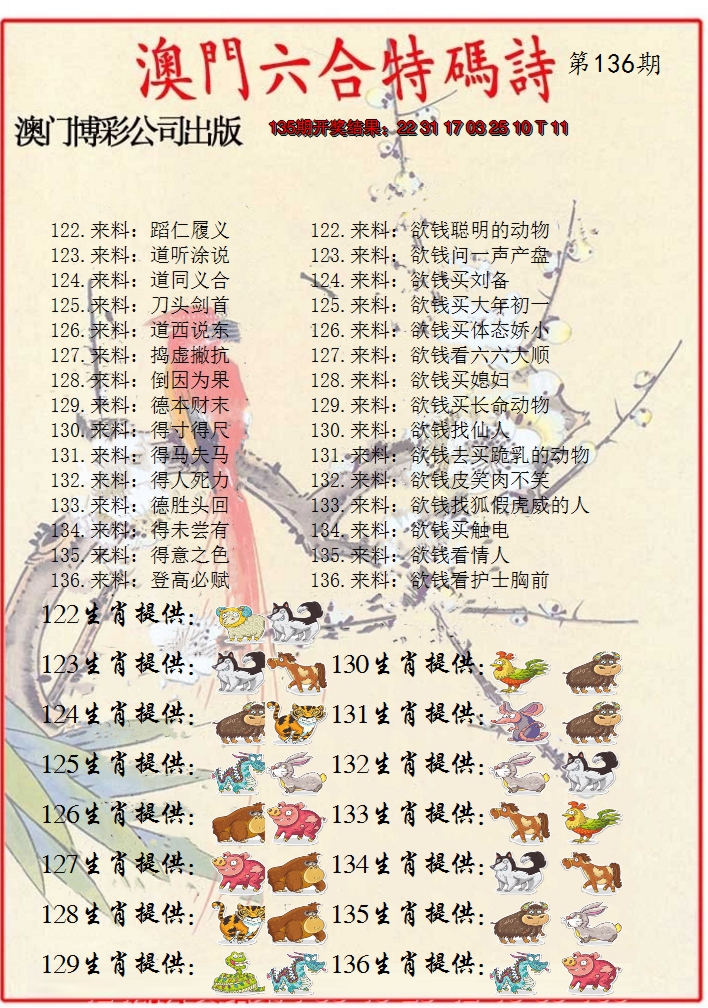 澳門六合特碼詩 第136期
澳门博彩公司出版 135期开奖结果：22 31 17 03 25 10 T 11
122.来料：蹈仁履义 122.来料：欲钱聪明的动物
123.来料：道听涂说 123.来料：欲钱问一声产盘
124.来料：道同义合 124.来料：欲钱买刘备
125.来料：刀头剑首 125.来料：欲钱买大年初一
126.来料：道西说东 126.来料：欲钱买体态娇小
127.来料：捣虚撇抗 127.来料：欲钱看六六大顺
128.来料：倒因为果 128.来料：欲钱买媳妇
129.来料：德本财末 129.来料：欲钱买长命动物
130.来料：得寸得尺 130.来料：欲钱找仙人
131.来料：得马失马 131.来料：欲钱去买跪乳的动物
132.来料：得人死力 132.来料：欲钱皮笑肉不笑
133.来料：德胜头回 133.来料：欲钱找狐假虎威的人
134.来料：得未尝有 134.来料：欲钱买触电
135.来料：得意之色 135.来料：欲钱看情人
136.来料：登高必赋 136.来料：欲钱看护士胸前
122生肖提供：
123生肖提供： 130生肖提供：
124生肖提供： 131生肖提供：
125生肖提供： 132生肖提供：
126生肖提供： 133生肖提供：
127生肖提供： 134生肖提供：
128生肖提供： 135生肖提供：
129生肖提供： 136生肖提供：